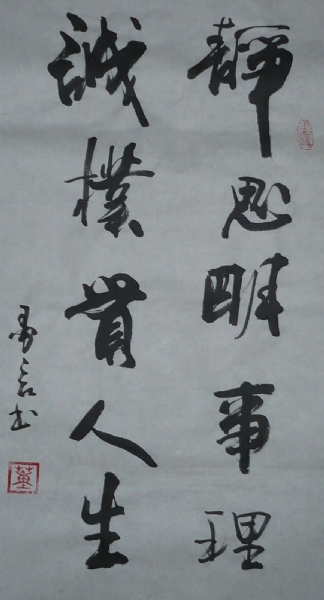 靜思明事理
誠樸貫人生